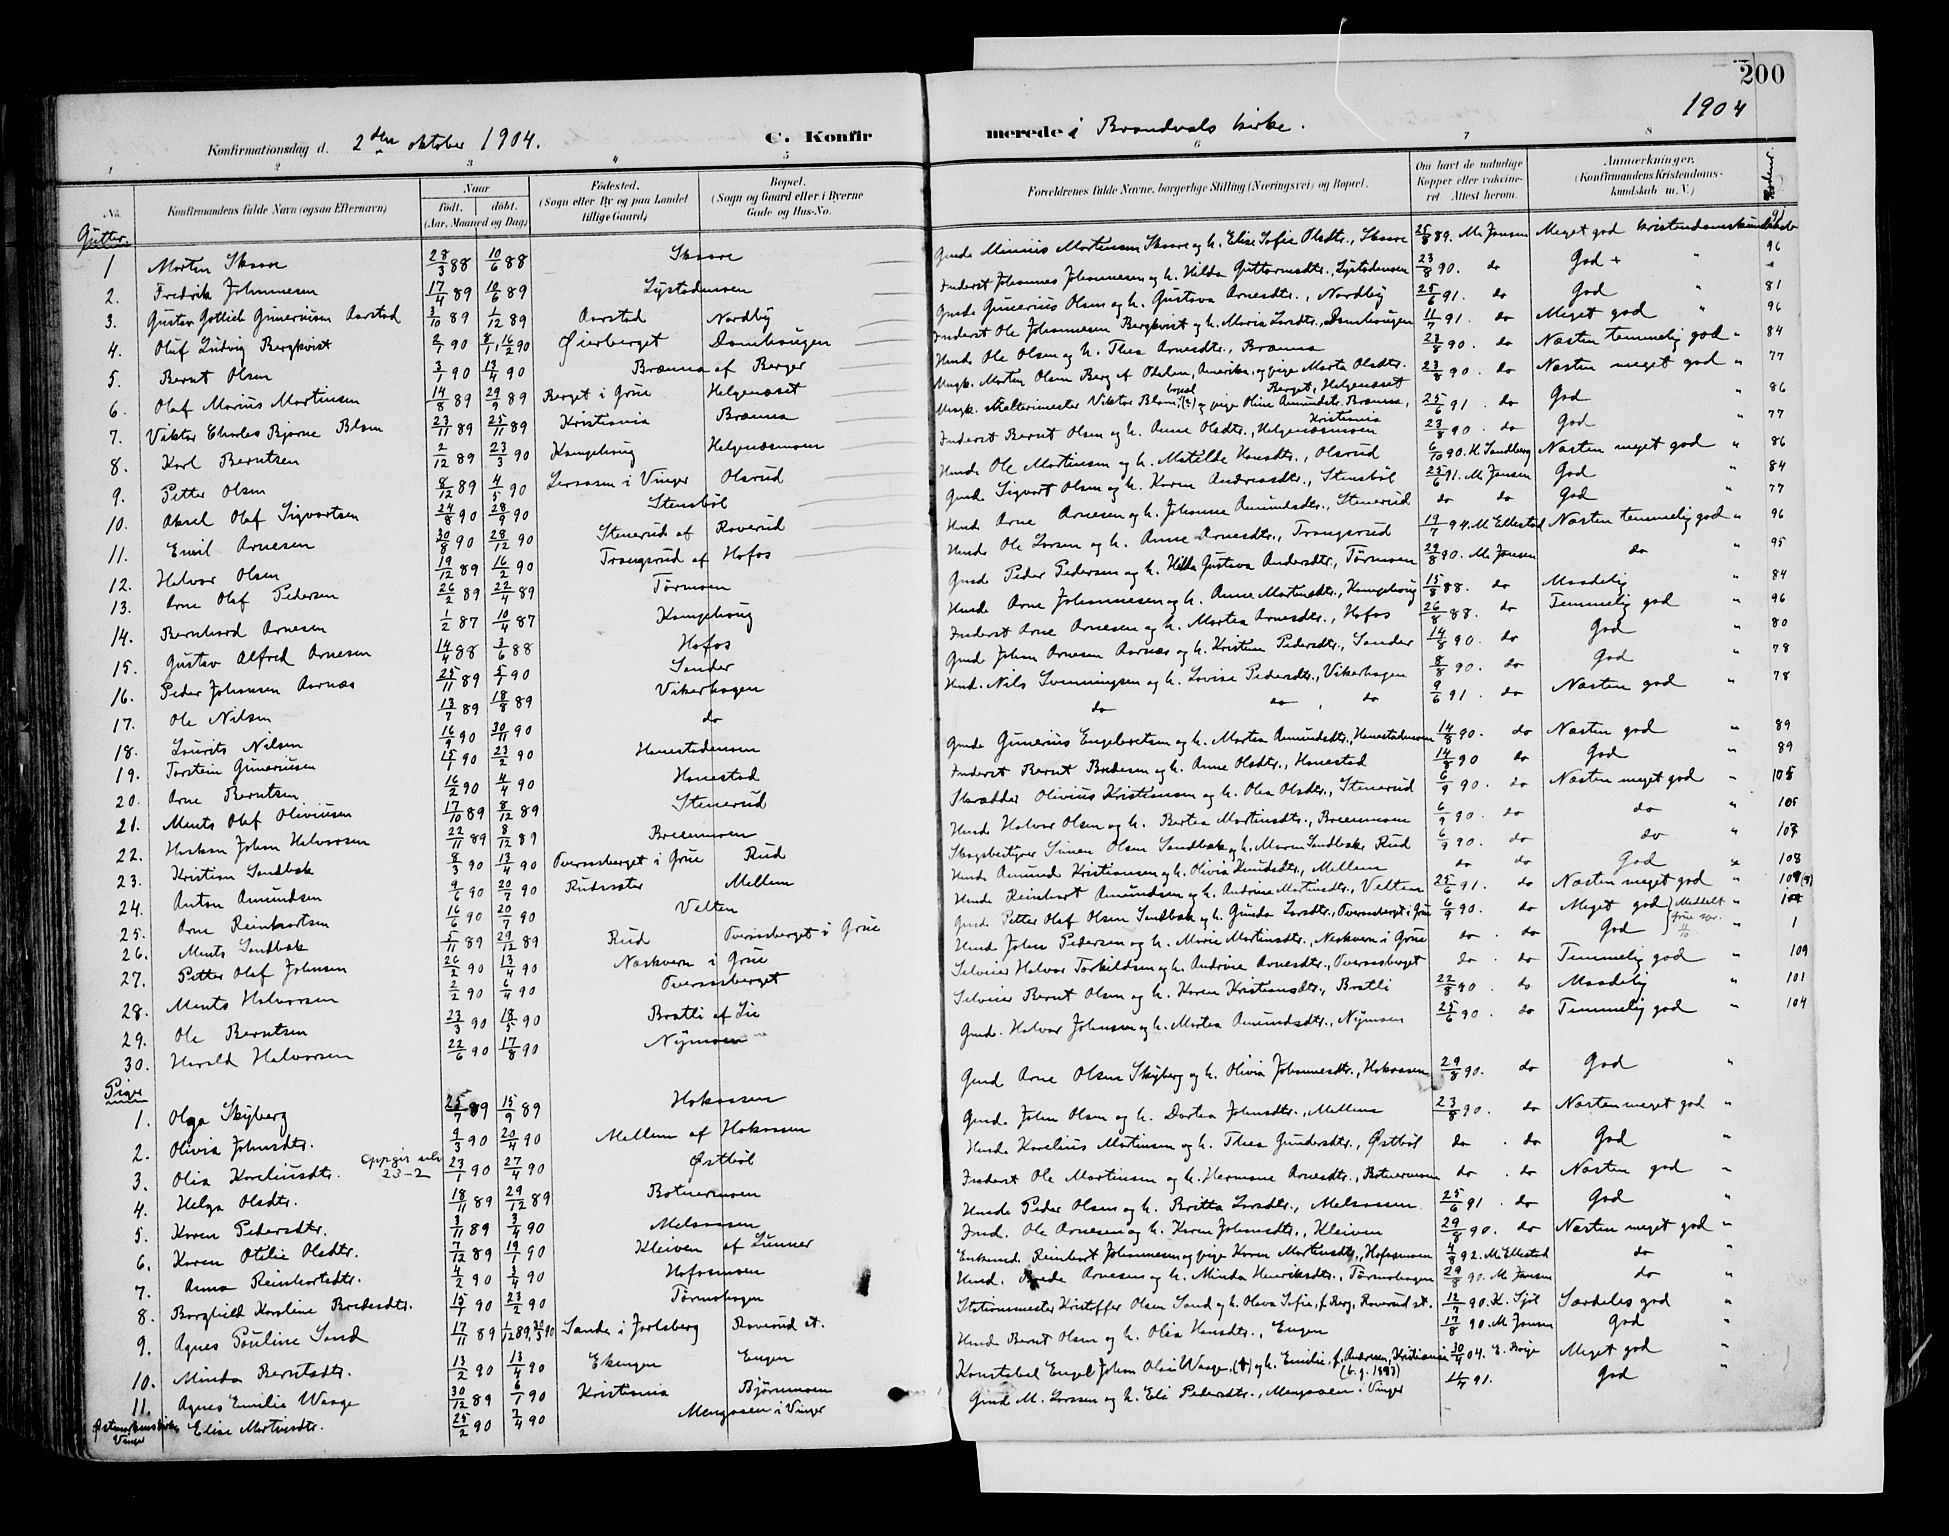 200
1904
Konfirmationsdag d. 2den oktober 1904. C. Konfirmerede i Brandvals kirke.
1 2 3 4 5 6 7 8
No. Konfirmandens fulde Navn (ogsaa Efternavn) Naar Født. døbt. (Aar, Maaned og Dag) Fødested. (Sogn eller By og paa Landet tillige Gaard) Bopæl. (Sogn og Gaard eller i Byerne Gade og Hus-No. Forældrenes fulde Navne, borgerlige Stilling (Næringsvei) og Bopæl. Om havt de naturlige Kopper eller vaccineret. Attest herom. Anmærkninger. (Konfirmandens Kristendomskundskab m. V.)
Gutter.
1 Morten Skaare 28/3 88 10/6 88 Skaare Gmd. Minius Mortensen Skaare og h. Elise Sofie Olsdtr., Skaare 25/8 89. M. Jensen Meget god kristendomskundskab
2. Fredrik Johannesen 17/4 89 10/6 89 Lystadmoen Inderst Johannes Johannesen og h. Hilda Guttormsdtr., Lystadmoen 23/8 90. do God " 96
3. Gustav Gotlieb Guneriusen Aarstad 3/10 89 1/12 89 Aarstad Nordby Gmd. Gunerius Olsen og h. Gustava Arnesdtr., Nordby 25/6 91. do God " 81
4. Oluf Ludvig Bergkvist 2/1 90 8/1, 16/2 90 Øierberget Domhaugen Inderst Ole Johannesen Bergkvist og h. Maria Larsdtr., Domhaugen 11/7 91. do Meget god " 96
5. Bernt Olsen 3/1 90 13/4 90 Brænna af Berger Hmd. Ole Olsen og h. Thea Arnesdtr., Brænna 23/8 90. do Næsten temmelig god " 84
6. Olaf Marius Martinsen 14/8 89 29/9 89 Berget i Grue Helgenæset Ungk. Morten Olsen Berg af Odalen, Amerika, og pige Marta Olsdtr. Berget, Helgenæset 23/8 90. do Næsten meget god " 77
7. Viktor Charles Bjarne Blom 23/11 89 25/11 89 Kristiania Brænna Ungk. Maltermester Viktor Blom, og pige Oline Amundsdtr. Brænna, Kristiania 25/6 91. do God " 86
8. Karl Berntsen 2/12 89 23/3 90 Kongehaug Helgenæsmoen Inderst Bernt Olsen og h. Anne Olsdtr., Helgenæsmoen 23/8 90. do God " 77
9. Petter Olsen 8/12 89 4/5 90 Lersæen i Vinger Olsrud Hmd. Ole Martinsen og h. Matilde Hansdtr., Olsrud 6/10 90. H. Sandberg Næsten meget god " 86
10. Aksel Olaf Sigvartsen 24/8 90 28/9 90 Stensbøl Gmd. Sigvart Olsen og h. Karen Andreasdtr., Stensbøl 25/6 91. M. Jensen God " 84
11. Emil Arnesen 30/8 90 28/12 90 Stenerud af Roverud Hmd. Arne Arnesen og h. Johanne Amundsdtr., Stenerud do do God " 77
12. Halvor Olsen 19/12 89 16/2 90 Trangsrud af Hofos Hmd. Ole Larsen og h. Anne Arnesdtr., Trangsrud 19/7 94. M. Ellestad Næsten temmelig god " 96
13. Arne Olaf Pedersen 26/2 89 22/4 89 Tørmoen Gmd. Peder Pedersen og h. Hilda Gustava Andersdtr., Tørmoen 29/8 90. M. Jensen do " 95
14. Bernhard Arnesen 1/2 87 10/4 87 Kongehaug Hmd. Arne Johannesen og h. Anne Martinsdtr., Kongehaug 15/8 88. do Maadelig " 84
15. Gustav Alfred Arnesen 14/4 88 3/6 88 Hofos Inderst Arne Arnesen og h. Martea Arnesdtr., Hofos 26/8 88. do Temmelig god " 96
16. Peder Johansen Aarnæs 25/11 89 5/1 90 Sander Gmd. Johan Arnesen Aarnæs og h. Kristine Pedersdtr., Sander 14/8 90. do God " 80
17. Ole Nilsen 13/7 89 18/8 89 Vikerhagen Hmd. Nils Svenningsen og h. Lovise Pedersdtr., Vikerhagen 8/8 90. do God " 78
18. Laurits Nilsen 16/9 90 30/11 90 do do do, do 9/6 91. do Næsten god " 78
19. Torstein Gunerusen 15/1 90 23/2 90 Hanestadmoen Gmd. Gunerius Engebretsen og h. Martea Amundsdtr., Hanestadmoen 14/8 90. do Næsten god " 89
20. Arne Berntsen 16/2 90 4/4 90 Hanestad Inderst Bernt Bredesen og h. Anne Olsdtr., Hanestad 14/8 90 do God " 89
21. Ments Olaf Oliviusen 17/10 89 8/12 89 Stenerud Skrædder Olivius Kristiansen og h. Olea Olsdtr., Stenerud 6/9 90. do Næsten meget god " 105
22. Haakon Johan Halvorsen 22/11 89 8/12 89 Breenmoen Hmd. Halvor Olsen og h. Bertea Martinsdtr., Breenmoen 6/9 90. do do " 105
23. Kristian Sandbak 8/3 90 13/4 90 Tveraasberget i Grue Rud Skogbestyrer Simen Olsen Sandbak og h. Maren Sandbak, Rud 6/9 90. do do " 107
24. Anton Amundsen 9/6 90 20/7 90 Rudssæter Mellem Hmd. Amund Kristiansen og h. Olivia Knudsdtr., Mellem do do God " 108
25. Arne Reinhartsen 16/6 90 20/7 90 Velten Hmd. Reinhart Amundsen og h. Andrine Martinsdtr., Velten 25/6 91. do Næsten meget god " 108
26. Ments Sandbak 5/11 89 29/12 89 Rud Tveraasberget i Grue Gmd. Petter Olaf Olsen Sandbak og h. Gunda Larsdtr., Tveraasberget i Grue 6/9 90. do Meget god } Meddelt Grue 11/10 "
27. Petter Olaf Johnsen 26/2 90 13/4 90 Næskvern i Grue Hmd. John Pedersen og h. Marie Martinsdtr., Næskvern i Grue do. do God " 1
28. Ments Halvorsen 2/2 90 6/4 90 Tveraasberget Selveier Halvor Torkildsen og h. Andrine Arnesdtr., Tveraasberget do. do Temmelig god " 109
29. Ole Berntsen 23/3 90 18/5 90 Bratli af Lie Selveier Bernt Olsen og h. Karen Kristiansdtr., Bratli 22/8 90. do Maadelig " 101
30. Harald Halvorsen 22/6 90 17/8 90 Nymoen Gmd. Halvor Johnsen og h. Martea Amundsdtr., Nymoen 25/6 90. do Temmelig god " 104
Piger
1. Olga Skyberg 25/7 89 15/9 89 Hokaasen Gmd. Arne Olsen Skyberg og h. Olivia Johannesdtr., Hokaasen 29/8 90. do God "
2. Olivia Johnsdtr. 3/3 90 20/4 90 Mellem af Hokaasen Gmd. John Olsen og h. Dortea Johnsdtr., Mellem 23/8 90. do Næsten meget god "
3. Olia Koreliusdtr. Oppgir selv 23-2 23/1 90 27/4 90 Østbøl Hmd. Korelius Martinsen og h. Thea Gundersdtr., Østbøl do. do God "
4. Helga Olsdtr. 18/11 89 29/12 89 Botnermoen Inderst Ole Martinsen og h. Hermane Arnesdtr., Botnermoen do. do Næsten god "
5. Karen Pedersdtr. 3/11 89 3/4 90 Melsaasen Hmd. Peder Olsen og h. Britta Larsdtr., Melsaasen 25/6 91. do God "
6. Karen Otilie Olsdtr. 7/12 89 19/1 90 Kleiven af Lunner Ind. Ole Arnesen og h. Karen Johansdtr., Kleiven 29/8 90. do Næsten meget god "
7. Anna Reinhartsdtr. 4/2 90 3/4 90 Hofosmoen Enkemd. Reinhart Johannesen og pige Karen Martinsdtr., Hofosmoen 4/8 92. M. Ellestad do "
8. Borghild Karoline Bredesdtr. 15/1 90 23/2 90 Tørmohagen Hmd. Brede Arnesen og h. Minda Henriksdtr., Tørmohagen 29/8 90. M. Jensen do "
9. Agnes Pauline Sand 17/11 89 1/12 89, 30/3 90 Sande i Jarlsberg Roverud st. Stationsmester Kristoffer Olsen Sand og h. Olava Sofie, f. Berg, Roverud st. 12/7 90. K. Sjøl Særdeles god "
10. Minda Berntsdtr. 13/2 90 13/4 90 Ekengen Engen Hmd. Bernt Olsen og h. Olia Hansdtr., Engen 17/8 90. M. Jensen God "
11. Agnes Emilie Waage 30/12 89 6/1 90 Kristiania Bjørnmoen Konstabel Engel Johan Olai Waage (†) og h. Emilie, f. Andersen, Kristiania (b. g. 1883) 30/4 04. E. Borge Meget god "
Østmarkens kirke Vinger Elise Martinsdtr. 25/2 90 7/4 90 Mengaasen i Vinger Gmd. M. Larssen og h. Eli Pedersdtr., Mengaasen i Vinger 11/7 91. God